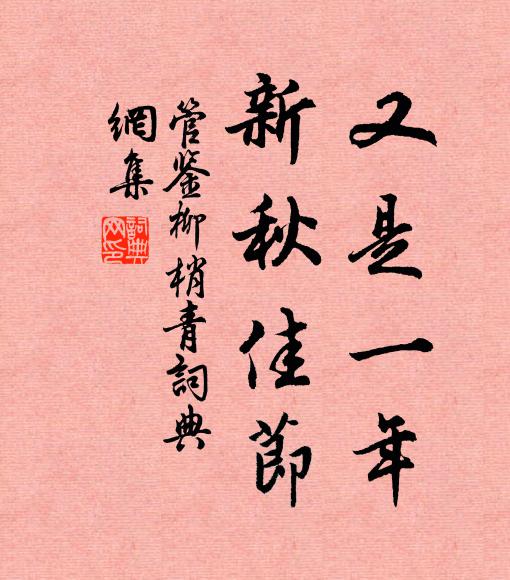 又是一年
新秋佳節
管鉴柳梢青詞典
網集
詞典
網印